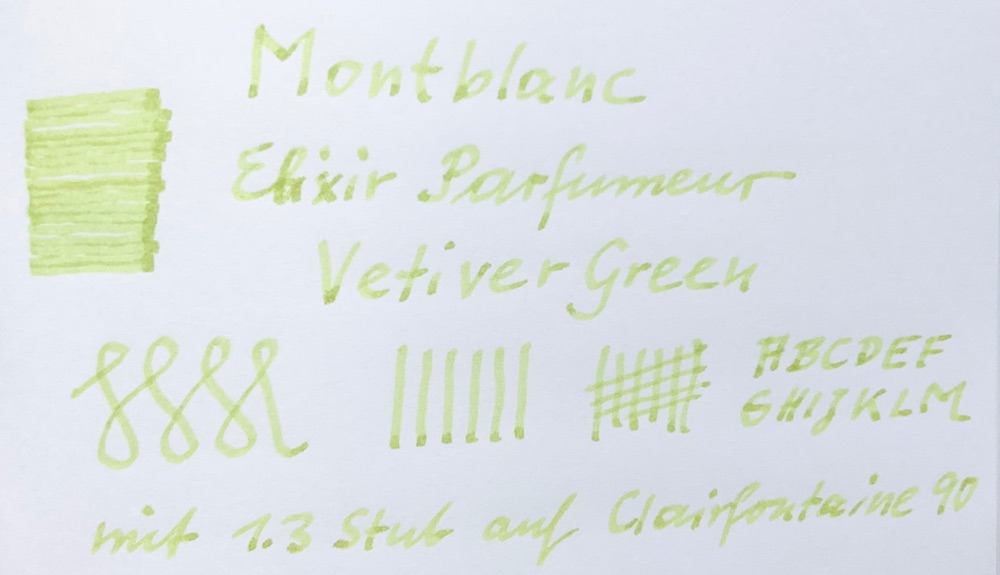 Montblanc
Elixir Parfumeur
Vetiver Green
ABCDEF
GHIJKLM
mit 1.3 Stub auf Clairfontaine 90